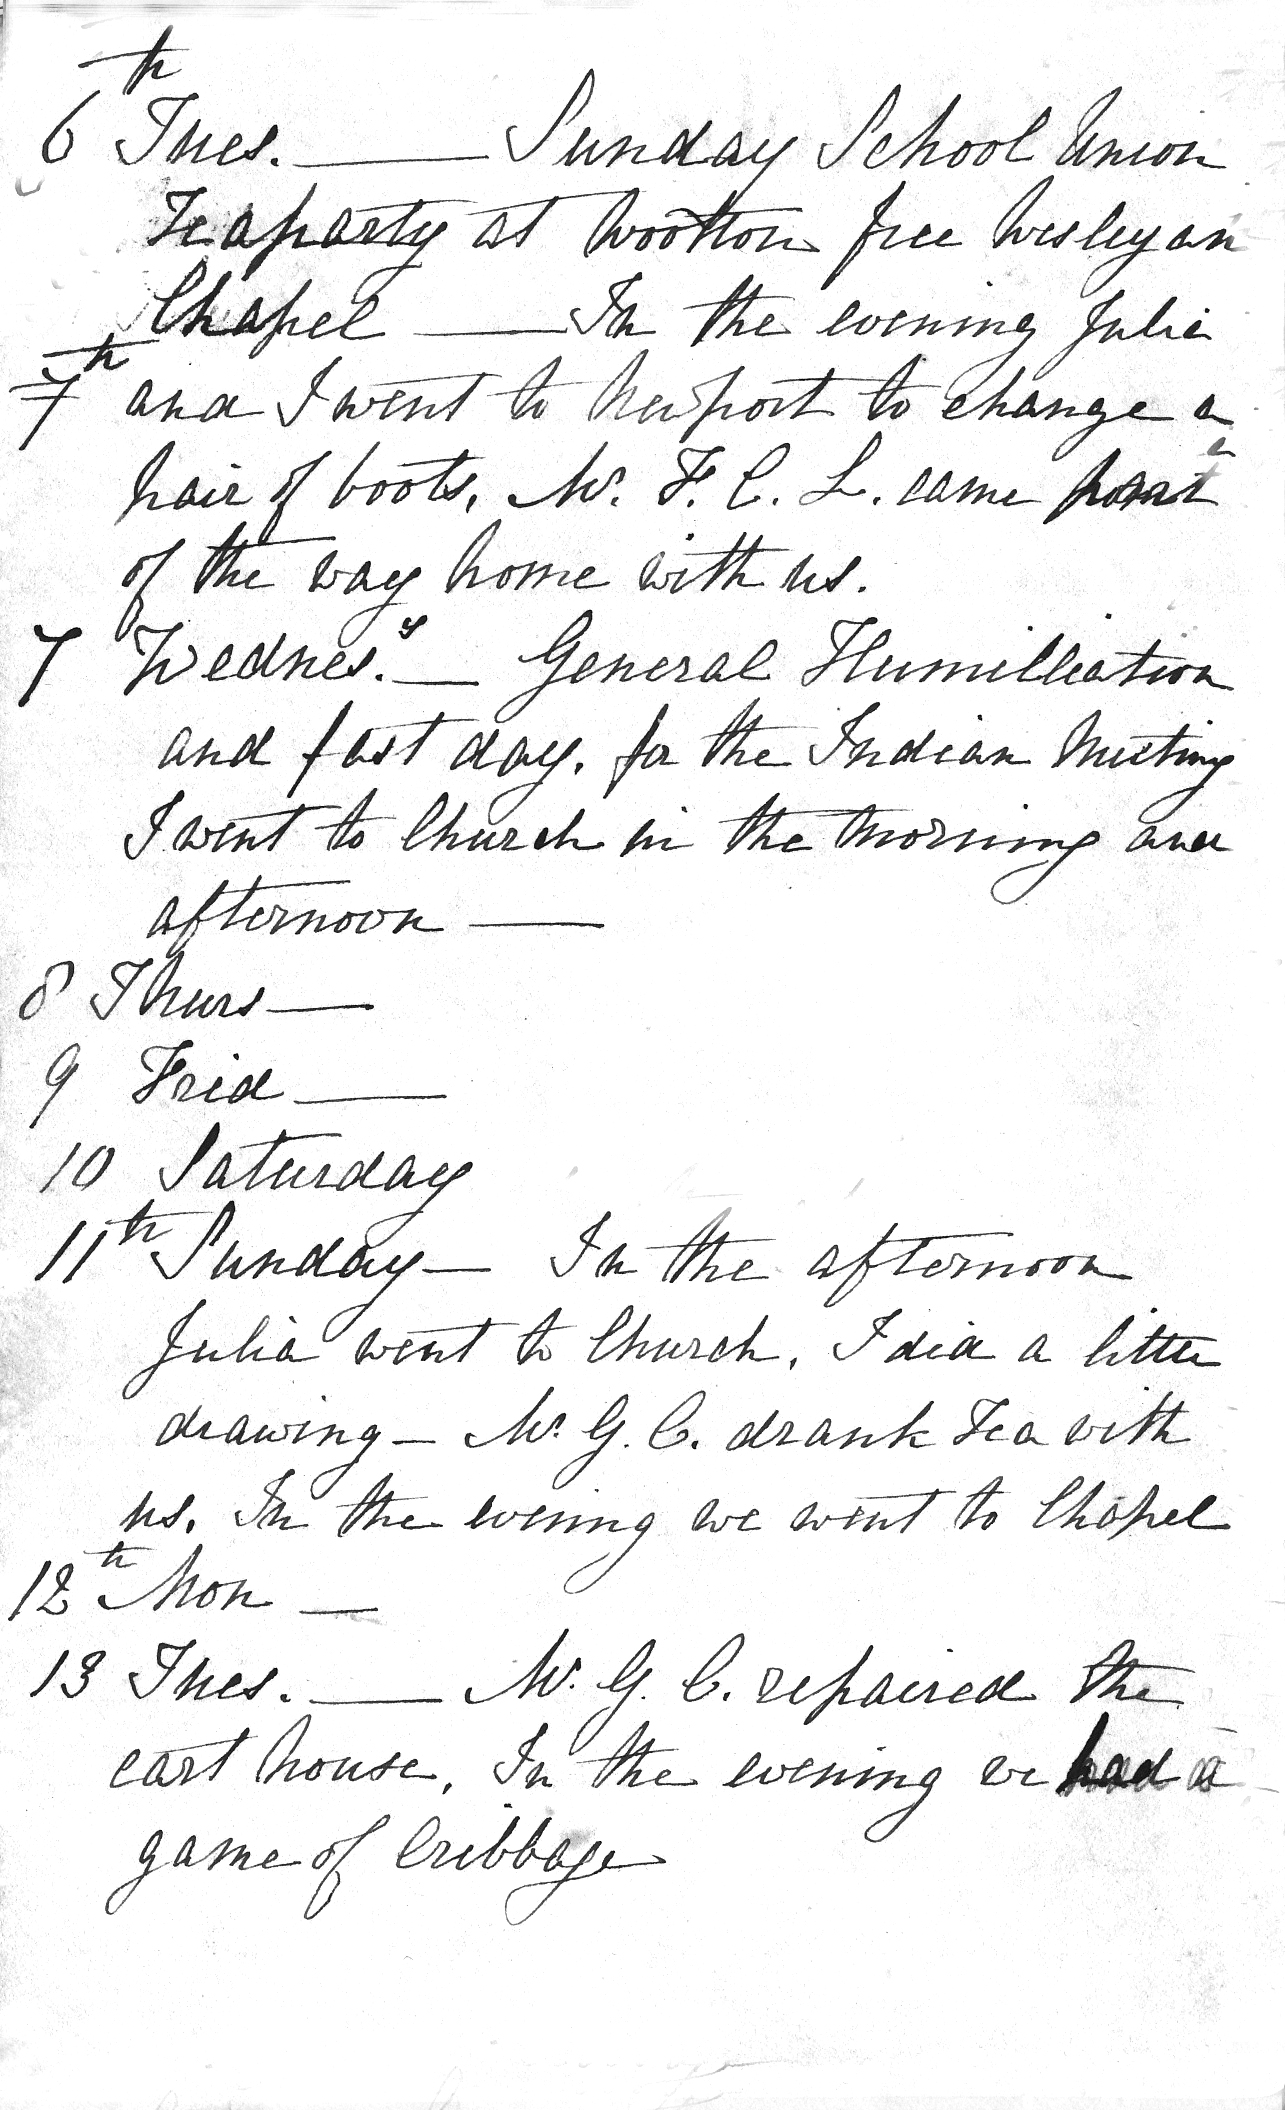 6th Tues. — Sunday School Union
Teaparty at Wootton free Wesleyan
Chapel — In the evening Julia
7th and I went to Newport to change a
pair of boots, Mr. F. C. L. came part
of the way home with us.
7 Wednes.y — General Humilliation
and fast day. for the Indian Muting
I went to Church in the morning and
afternoon —
8 Thurs —
9 Frid —
10 Saturday
11th Sunday — In the afternoon
Julia went to Church, I did a little
drawing — Mr. G. C. drank Tea with
us, In the evening we went to Chapel
12th Mon —
13 Tues. — Mr. G. C. repaired the
cart house, In the evening we had a
game of Cribbage